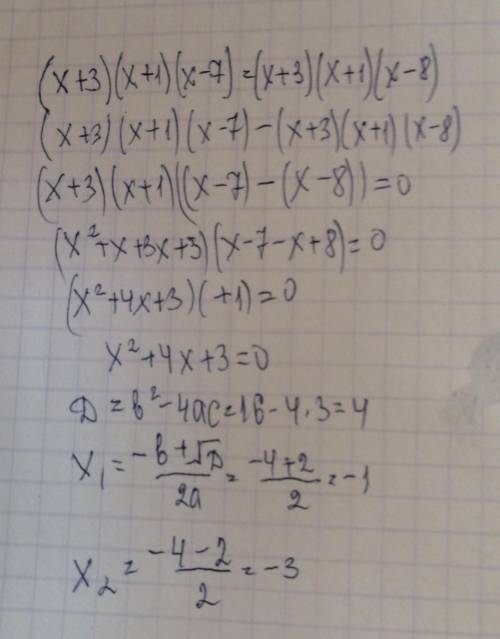 (x+3)(x+1)(x-7)=(x+3)(x+1)(x-8)
(x+3)(x+1)(x-7)-(x+3)(x+1)(x-8)
(x+3)(x+1)((x-7)-(x-8))=0
(x²+x+3x+3)(x-7-x+8)=0
(x²+4x+3)(+1)=0
x²+4x+3=0
D=b²-4ac=16-4·3=4
x₁=(-b+√D)/2a=(-4+2)/2=-1
x₂=(-4-2)/2=-3